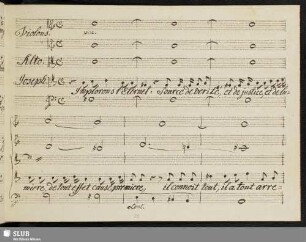 Violons.
Alto.
Joseph.
Implorons l'Eternel, source de verité, et de justice, et de lu-
miere, de tout effet cause premiere, il connoit tout, il a tout arre-
Lent.
SLUB